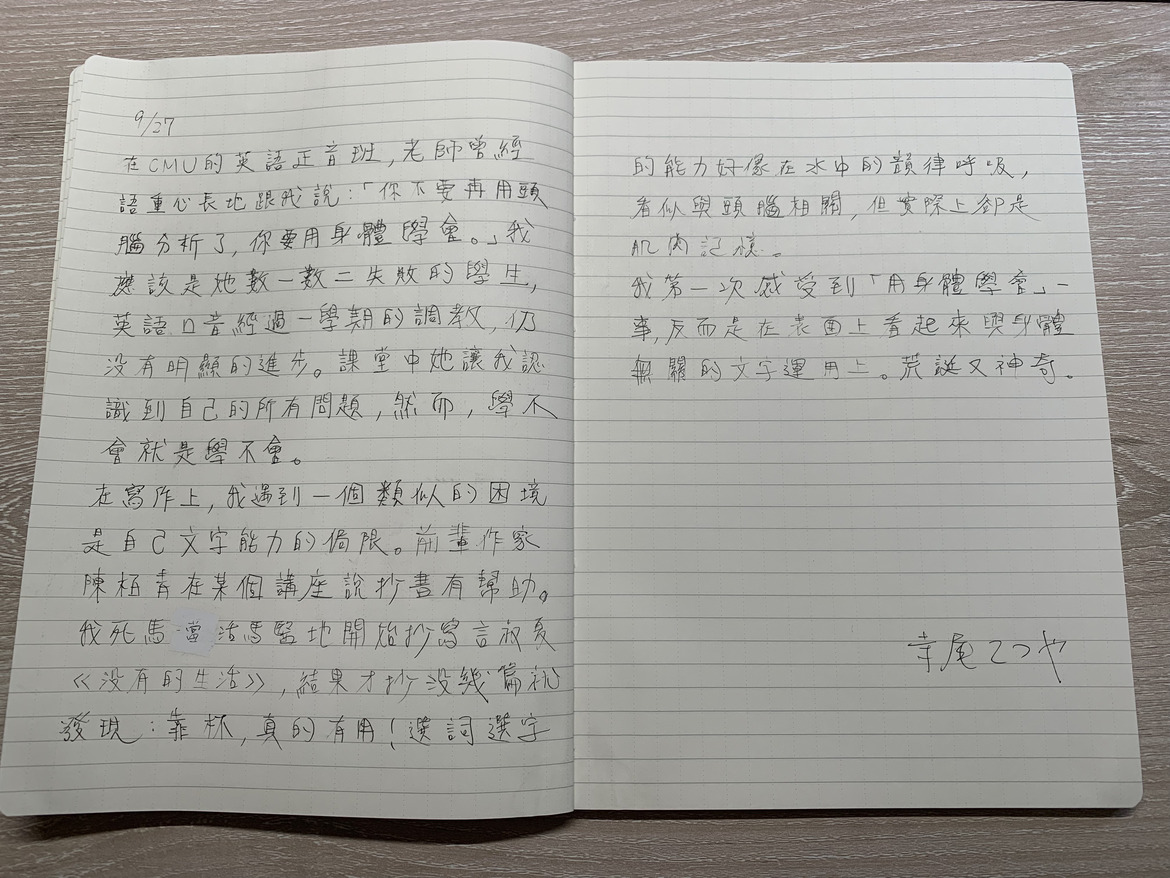 9/27
在CMU的英語正音班,老師曾經
語重心長地跟我說:「你不要再用頭
腦分析了,你要用身體學會。」我
應該是她數一數二失敗的學生,
英語口音經過一學期的調教,仍
沒有明顯的進步。課堂中她讓我認
識到自己的所有問題,然而,學不
會就是學不會。
在寫作上,我遇到一個類似的困境
是自己文字能力的侷限。前輩作家
陳栢青在某個講座說抄書有幫助。
我死馬當活馬醫地開始抄寫言叔夏
《沒有的生活》,結果才抄沒幾篇就
發現:靠杯,真的有用!選詞選字
的能力好像在水中的韻律呼吸,
看似與頭腦相關,但實際上卻是
肌肉記憶。
我第一次感受到「用身體學會」一
事,反而是在表面上看起來與身體
無關的文字運用上。荒誕又神奇。
寺尾てつや